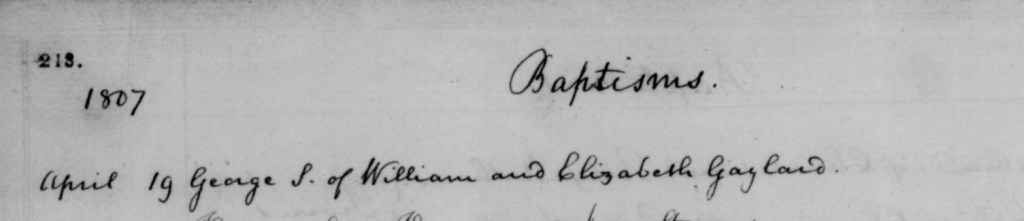 213.
Baptisms.
1807
April 19 George S. of William and Elizabeth Gaylard.